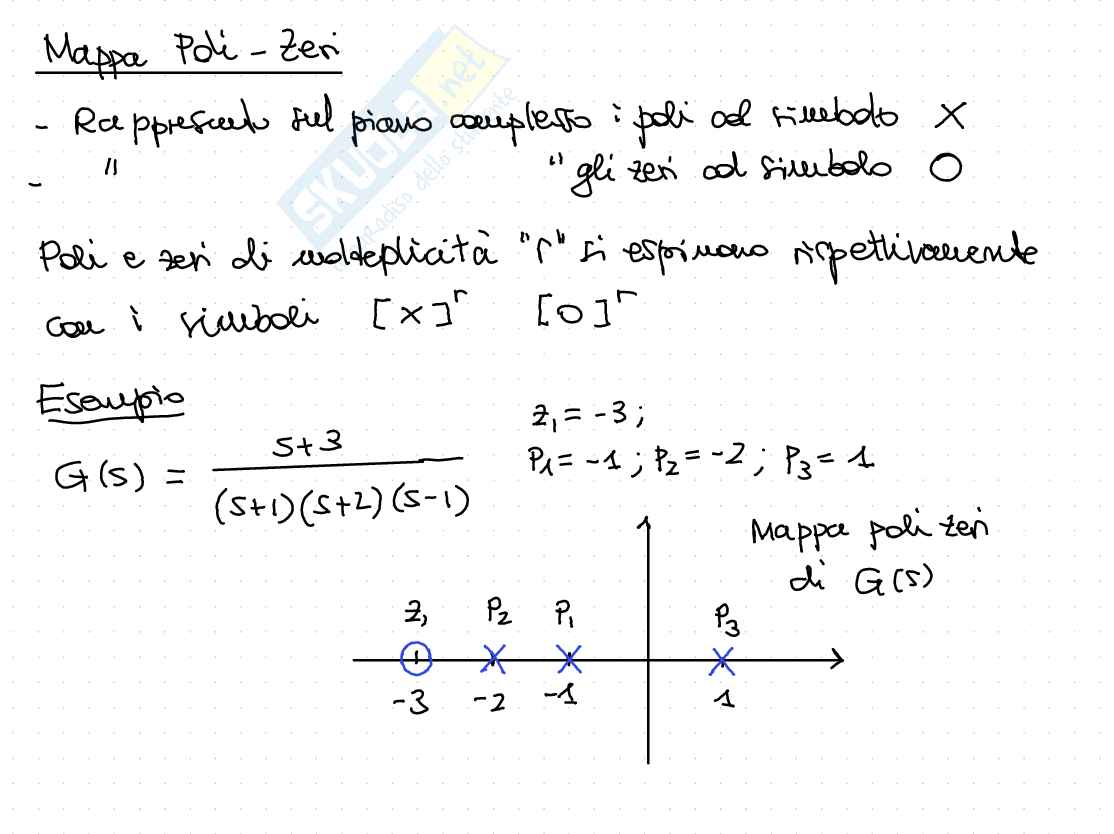 Mappa Poli - Zeri
- Rappresento sul piano complesso i poli col simbolo X
- " " gli zeri col simbolo O
Poli e zeri di molteplicità "r" si esprimono rispettivamente
con i simboli [X]^r [O]^r
Esempio
G(s) = (s+3) / ((s+1)(s+2)(s-1))
z₁ = -3;
P₁ = -1; P₂ = -2; P₃ = 1
Mappa poli zeri
di G(s)
z₁ P₂ P₁ P₃
-3 -2 -1 1
SKUOLA.net
paradiso dello studente